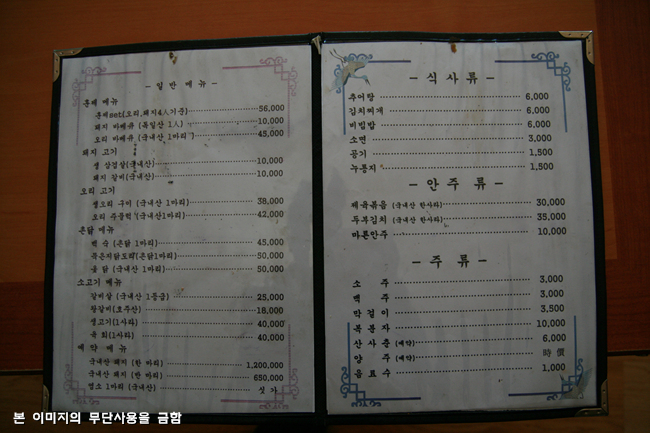 - 일 반 메 뉴 -
훈제 메뉴
훈제set(오리,돼지4人기준) 56,000
돼지 바베큐 (독일산 1人) 10,000
오리 바베큐 (국내산 1마리) 45,000
돼지 고기
생 삼겹살(국내산) 10,000
돼지 갈비(국내산) 10,000
오리 고기
생오리 구이 (국내산 1마리) 38,000
오리 주물럭 (국내산1마리) 42,000
촌닭 메뉴
백 숙 (촌닭 1마리) 45,000
묵은지닭도리(촌닭1마리) 50,000
옻 닭 (국내산 1마리) 50,000
소고기 메뉴
갈비살 (국내산 1등급) 25,000
왕갈비(호주산) 18,000
생고기(1사라) 40,000
육 회(1사라) 40,000
예 약 메 뉴
국내산 돼지 (한 마리) 1,200,000
국내산 돼지 (반 마리) 650,000
염소 1마리 (국내산) 싯 가
- 식 사 류 -
추어탕 6,000
김치찌개 6,000
비빔밥 6,000
소면 3,000
공기 1,500
누룽지 1,500
- 안 주 류 -
제육볶음 (국내산 한사라) 30,000
두부김치 (국내산 한사라) 35,000
마른안주 10,000
- 주 류 -
소 주 3,000
맥 주 3,000
막걸이 3,500
복분자 10,000
산사춘 (예약) 6,000
양 주 (예약) 時 價
음료수 1,000
본 이미지의 무단사용을 금함